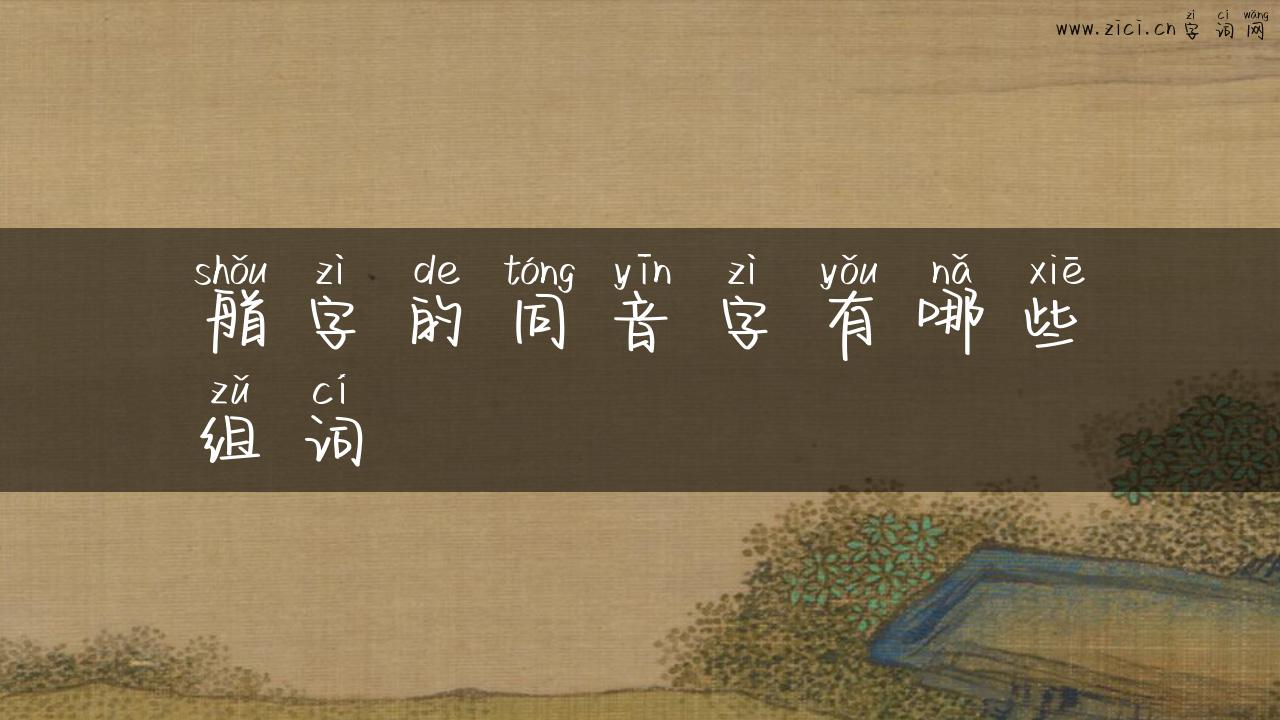 www.zici.cn zì cí wǎng 字词网
shǒu zì de tóng yīn zì yǒu nǎ xiē
艏字的同音字有哪些
zǔ cí
组词